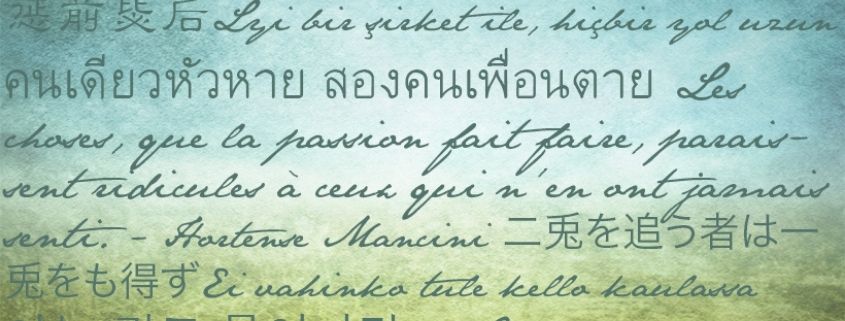 惩前毖后 Iyi bir şirket ile, hiçbir yol uzun
คนเดียวหัวหาย สองคนเพื่อนตาย Les
choses, que la passion fait faire, parais-
sent ridicules à ceux qui n'en ont jamais
senti. - Hortense Mancini 二兎を追う者は一
兎をも得ず Ei vahinko tule kello kaulassa